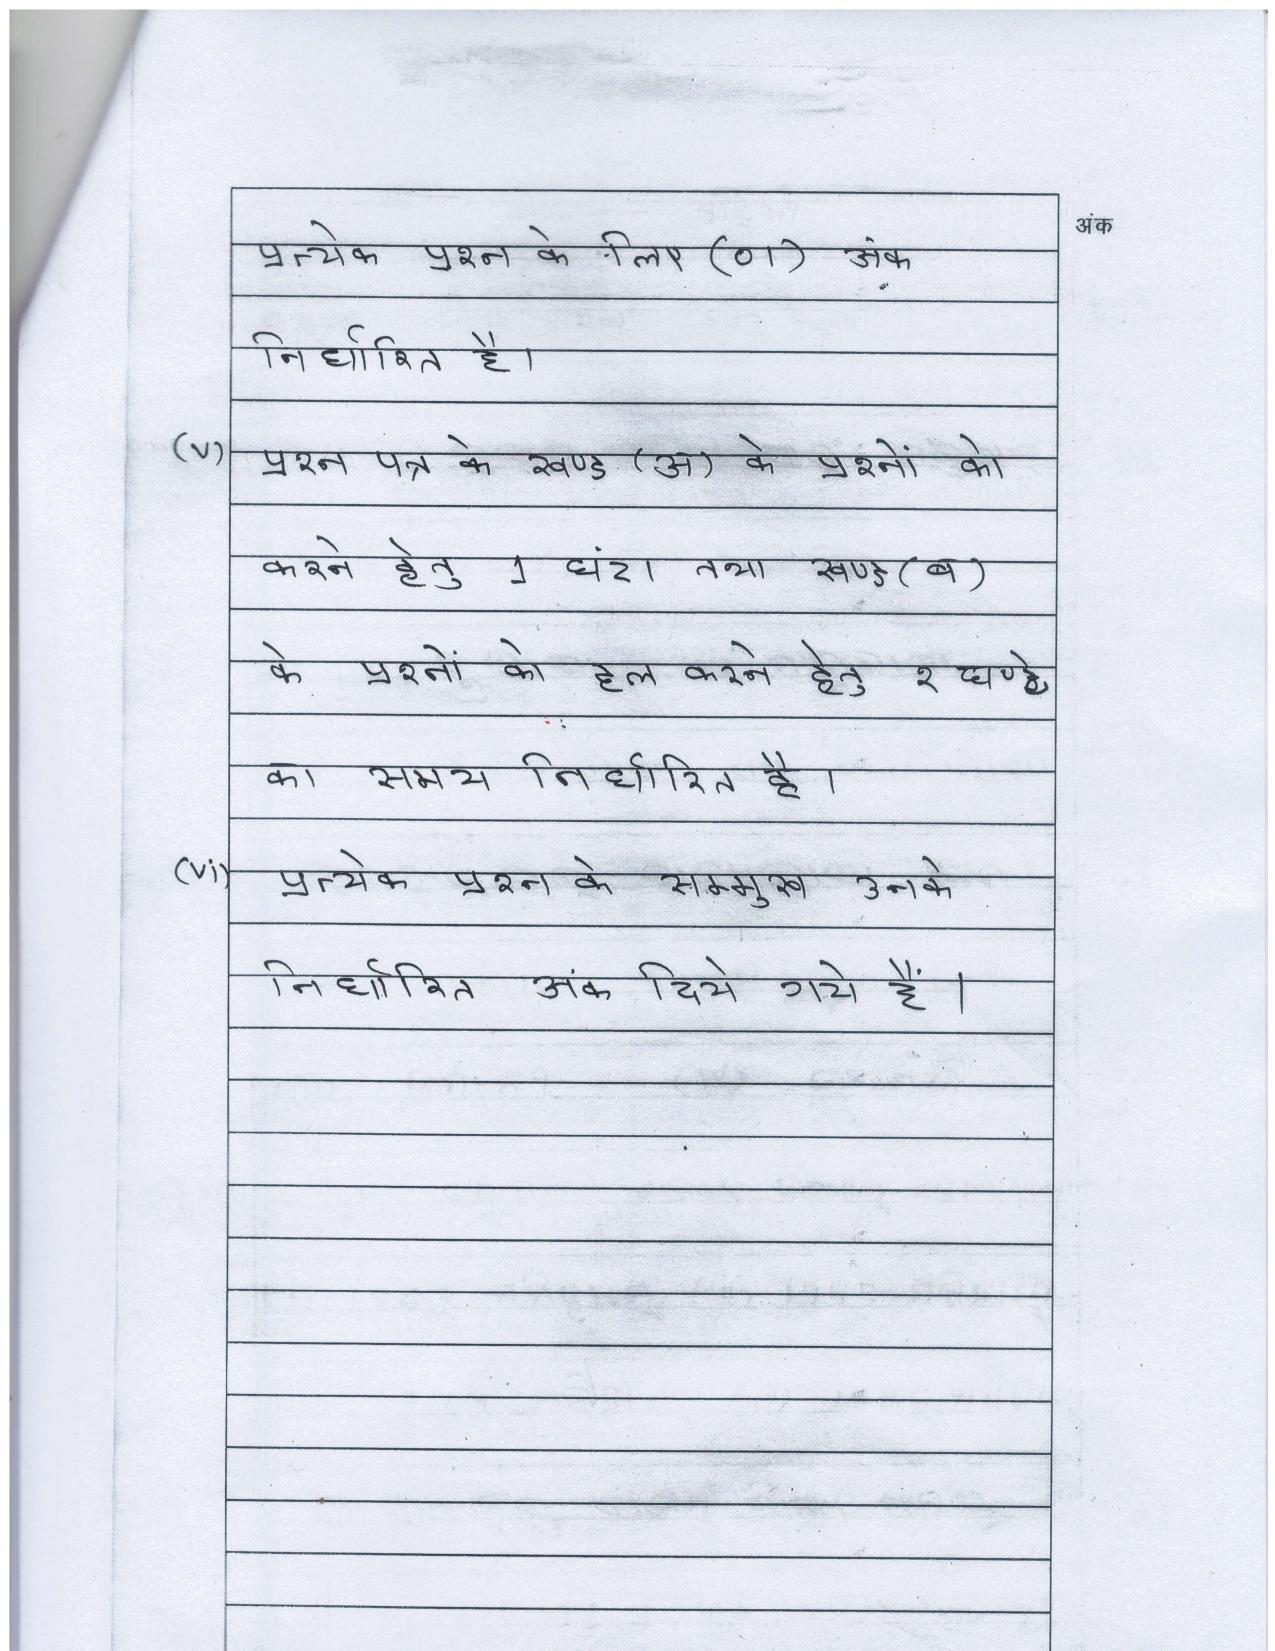 अंक
प्रत्येक प्रश्न के लिए (01) अंक
निर्धारित है।
(v) प्रश्न पत्र के खण्ड (अ) के प्रश्नों को
करने हेतु 1 घंटा तथा खण्ड (ब)
के प्रश्नों को हल करने हेतु २ घण्टे
का समय निर्धारित है।
(vi) प्रत्येक प्रश्न के सम्मुख उनके
निर्धारित अंक दिये गये हैं।